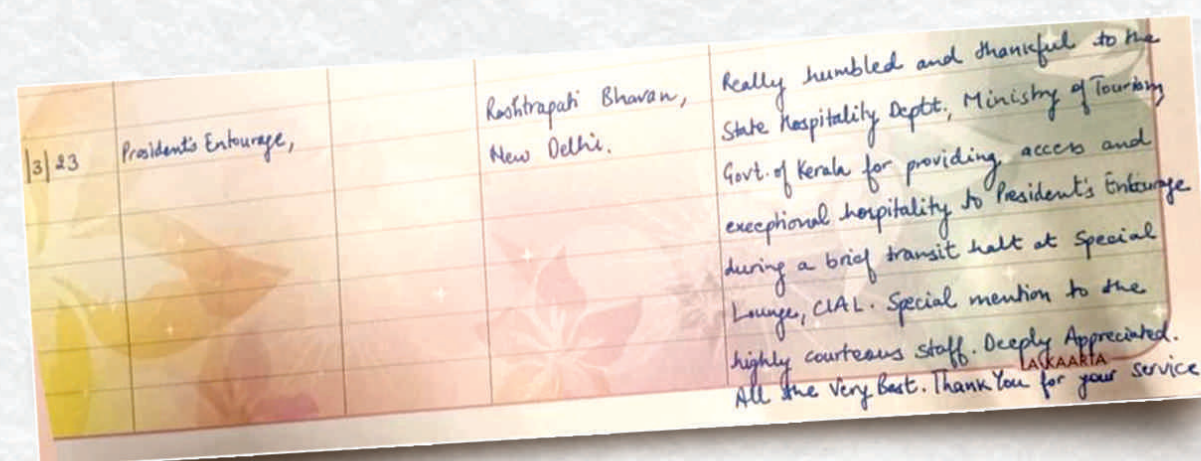 |3|23
President's Entourage,
Rashtrapati Bhavan,
New Delhi.
Really humbled and thankful to the
State Hospitality Deptt, Ministry of Tourism,
Govt. of Kerala for providing access and
exceptional hospitality to President's Entourage
during a brief transit halt at Special
Lounge, CIAL. Special mention to the
highly courteous staff. Deeply Appreciated.
All the Very Best. Thank You for your service
LASKAARTA